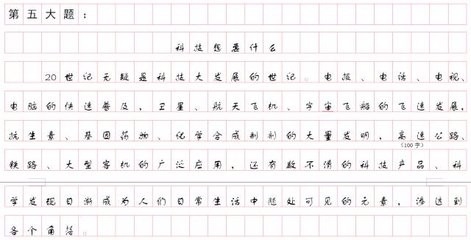 第五大题：
科技想要什么
20世纪无疑是科技大发展的世纪。电报、电话、电视、
电脑的快速普及，卫星、航天飞机、宇宙飞船的飞速发展，
抗生素、基因药物、化学合成制剂的大量发明，高速公路、
(100字)
铁路、大型客机的广泛应用，还有数不清的科技产品、科
学发现日渐成为人们日常生活中随处可见的元素，渗透到
各个角落。